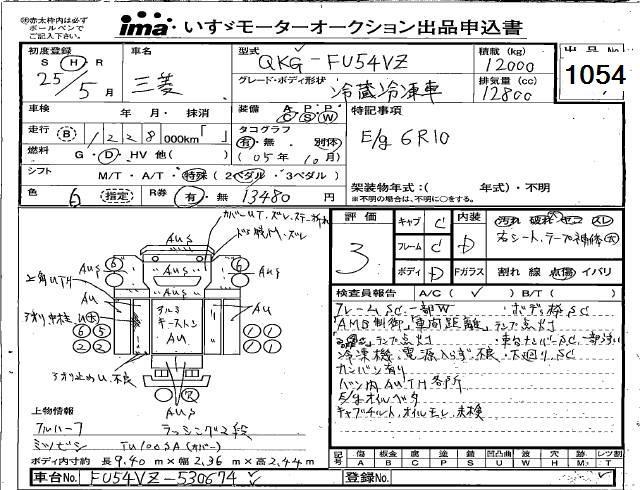 ※赤太枠内は必ず
ボールペンで
ご記入下さい。
ima いすゞモーターオークション出品申込書
初度登録 車名 型式 積載 (kg) 出品No
S H R 三菱 QKG-FU54VZ 12000
25/5月 グレード・ボディ形状 排気量 (cc) 1054
冷蔵冷凍車 12800
車検 年・月・抹消 装備 A P P C S W 特記事項
走行 B 1228 000km「 」 タコグラフ E/g 6R10
有・無 別体
燃料 G・D・HV 他( ) (05年10月)
シフト M/T・A/T・特殊 (2ペダル・3ペダル)
架装物年式:( 年式)・不明
色 6 指定 R券 有・無 13480円
※不明の場合は、不明に○をする。
カバーUT、ズレ、ステー折れ
評価 キャブ C 内装 汚れ 破れ ヤニ スレ
3 フレーム C D 右シート、テープ補修(大)
ボディ D Fガラス 割れ 線 点傷 イバリ
AUS
AUS
AUS
上角UTH
AU
AU
アルミ
キーストン
AU
アオリ止めU、不良
AUS
検査員報告 A/C( ✓ ) B/T( )
フレームSC、一部W・ボディ枠SC
「AMG制御」「車間距離」ランプ点灯
冷凍機、電源入らず不良・下廻りSC
カンバン有り
バン内AUTH各所
E/gオイルベタ
キャブチルト、オイルモレ、未検
上物情報
アルハーフ ラッシング2段
ミツビシ TU100SA(カバー)
ボディ内寸約 長9.40m×幅2.36m×高2.44m
記号 傷 板金 腐 塗 錆 凹凸曲 波 穴 跡 レツ割
A B C P S U W H M T
車台No. FU54VZ-530674 ✓ 登録No.